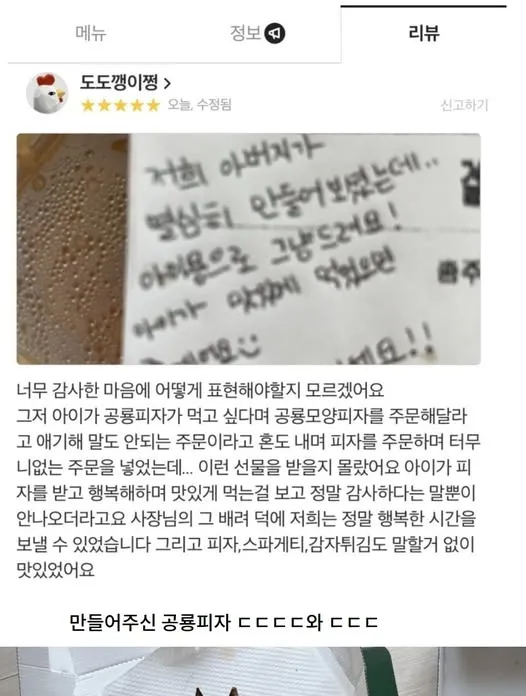 메뉴
정보
리뷰
도도깽이쩡 >
오늘, 수정됨
신고하기
저희 아버지가
열심히 만들어보셨는데..
아이용으로 그냥 드려요!
아이가 맛있게 먹었으면
너무 감사한 마음에 어떻게 표현해야할지 모르겠어요
그저 아이가 공룡피자가 먹고 싶다며 공룡모양피자를 주문해달라
고 얘기해 말도 안되는 주문이라고 혼도 내며 피자를 주문하며 터무
니없는 주문을 넣었는데... 이런 선물을 받을지 몰랐어요 아이가 피
자를 받고 행복해하며 맛있게 먹는걸 보고 정말 감사하다는 말뿐이
안나오더라고요 사장님의 그 배려 덕에 저희는 정말 행복한 시간을
보낼 수 있었습니다 그리고 피자,스파게티,감자튀김도 말할거 없이
맛있었어요
만들어주신 공룡피자 ㄷㄷㄷㄷ와 ㄷㄷㄷ